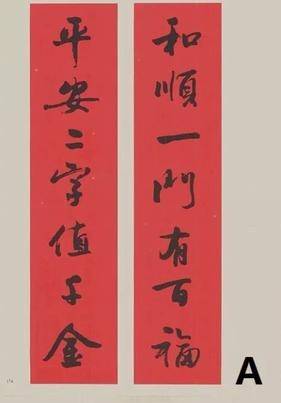 和順一門有百福
平安二字值千金
A